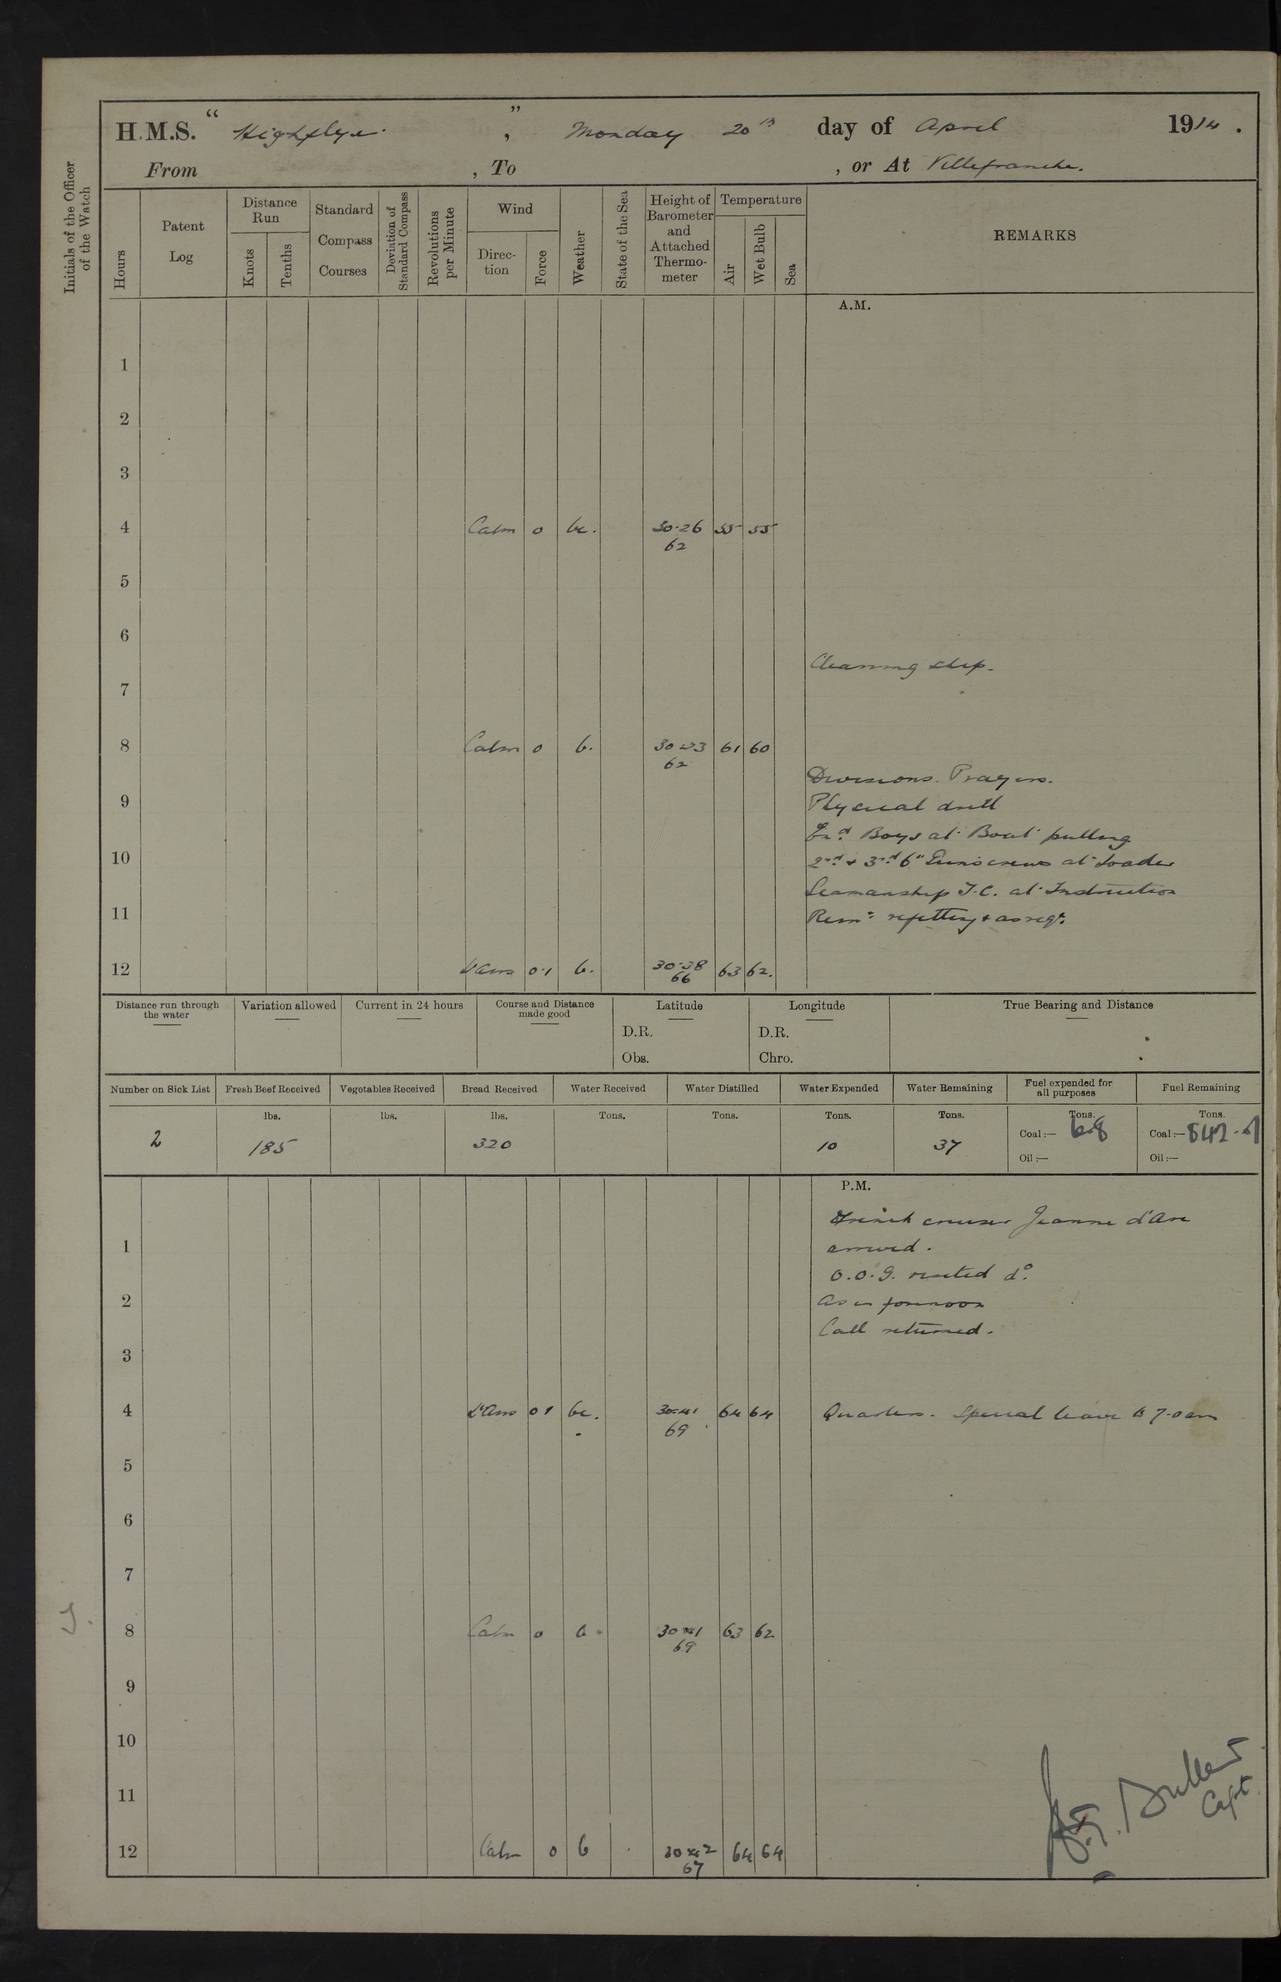 H.M.S. “ Highflyer ” , Monday 20th day of April 1914 .
From , To , or At Villefranche.
Initials of the Officer of the Watch
Hours
Patent Log
Distance Run
Knots
Tenths
Standard Compass Courses
Deviation of Standard Compass
Revolutions per Minute
Wind
Direc-tion
Force
Weather
State of the Sea
Height of Barometer and Attached Thermo-meter
Temperature
Air
Wet Bulb
Sea
REMARKS
A.M.
1
2
3
4 Calm 0 bc. 30.26 55 55
62
5
6
Cleaning ship.
7
8 Calm 0 b. 30.33 61 60
62
Divisions. Prayers.
9 Physical drill
Boys at Boat pulling
10 2nd & 3rd 6" Guns crews at Loader
Seamanship T.C. at Instruction
11 Remr refitting & as reqr.
12 L'Airs 0.1 b. 30.38 63 62.
66
Distance run through the water
Variation allowed
Current in 24 hours
Course and Distance made good
Latitude
D.R.
Obs.
Longitude
D.R.
Chro.
True Bearing and Distance
Number on Sick List Fresh Beef Received Vegetables Received Bread Received Water Received Water Distilled Water Expended Water Remaining Fuel expended for all purposes Fuel Remaining
lbs. lbs. lbs. Tons. Tons. Tons. Tons. Tons. Tons.
2 185 320 10 37 Coal :— 6.8 Coal :— 
Oil :— Oil :—
P.M.
French cruiser Jeanne d'Arc
1 arrived.
O.O.G. visited do.
2 As in forenoon
Call returned.
3
4 L'Airs 0 1 bc. 30.41 64 64 Quarters. Special leave to 7.0 am
69
5
6
7
8 Calm 0 b. 30.41 63 62
69
9
10
11
12 Calm 0 b 30.42 64 64
67
Buller
Capt.